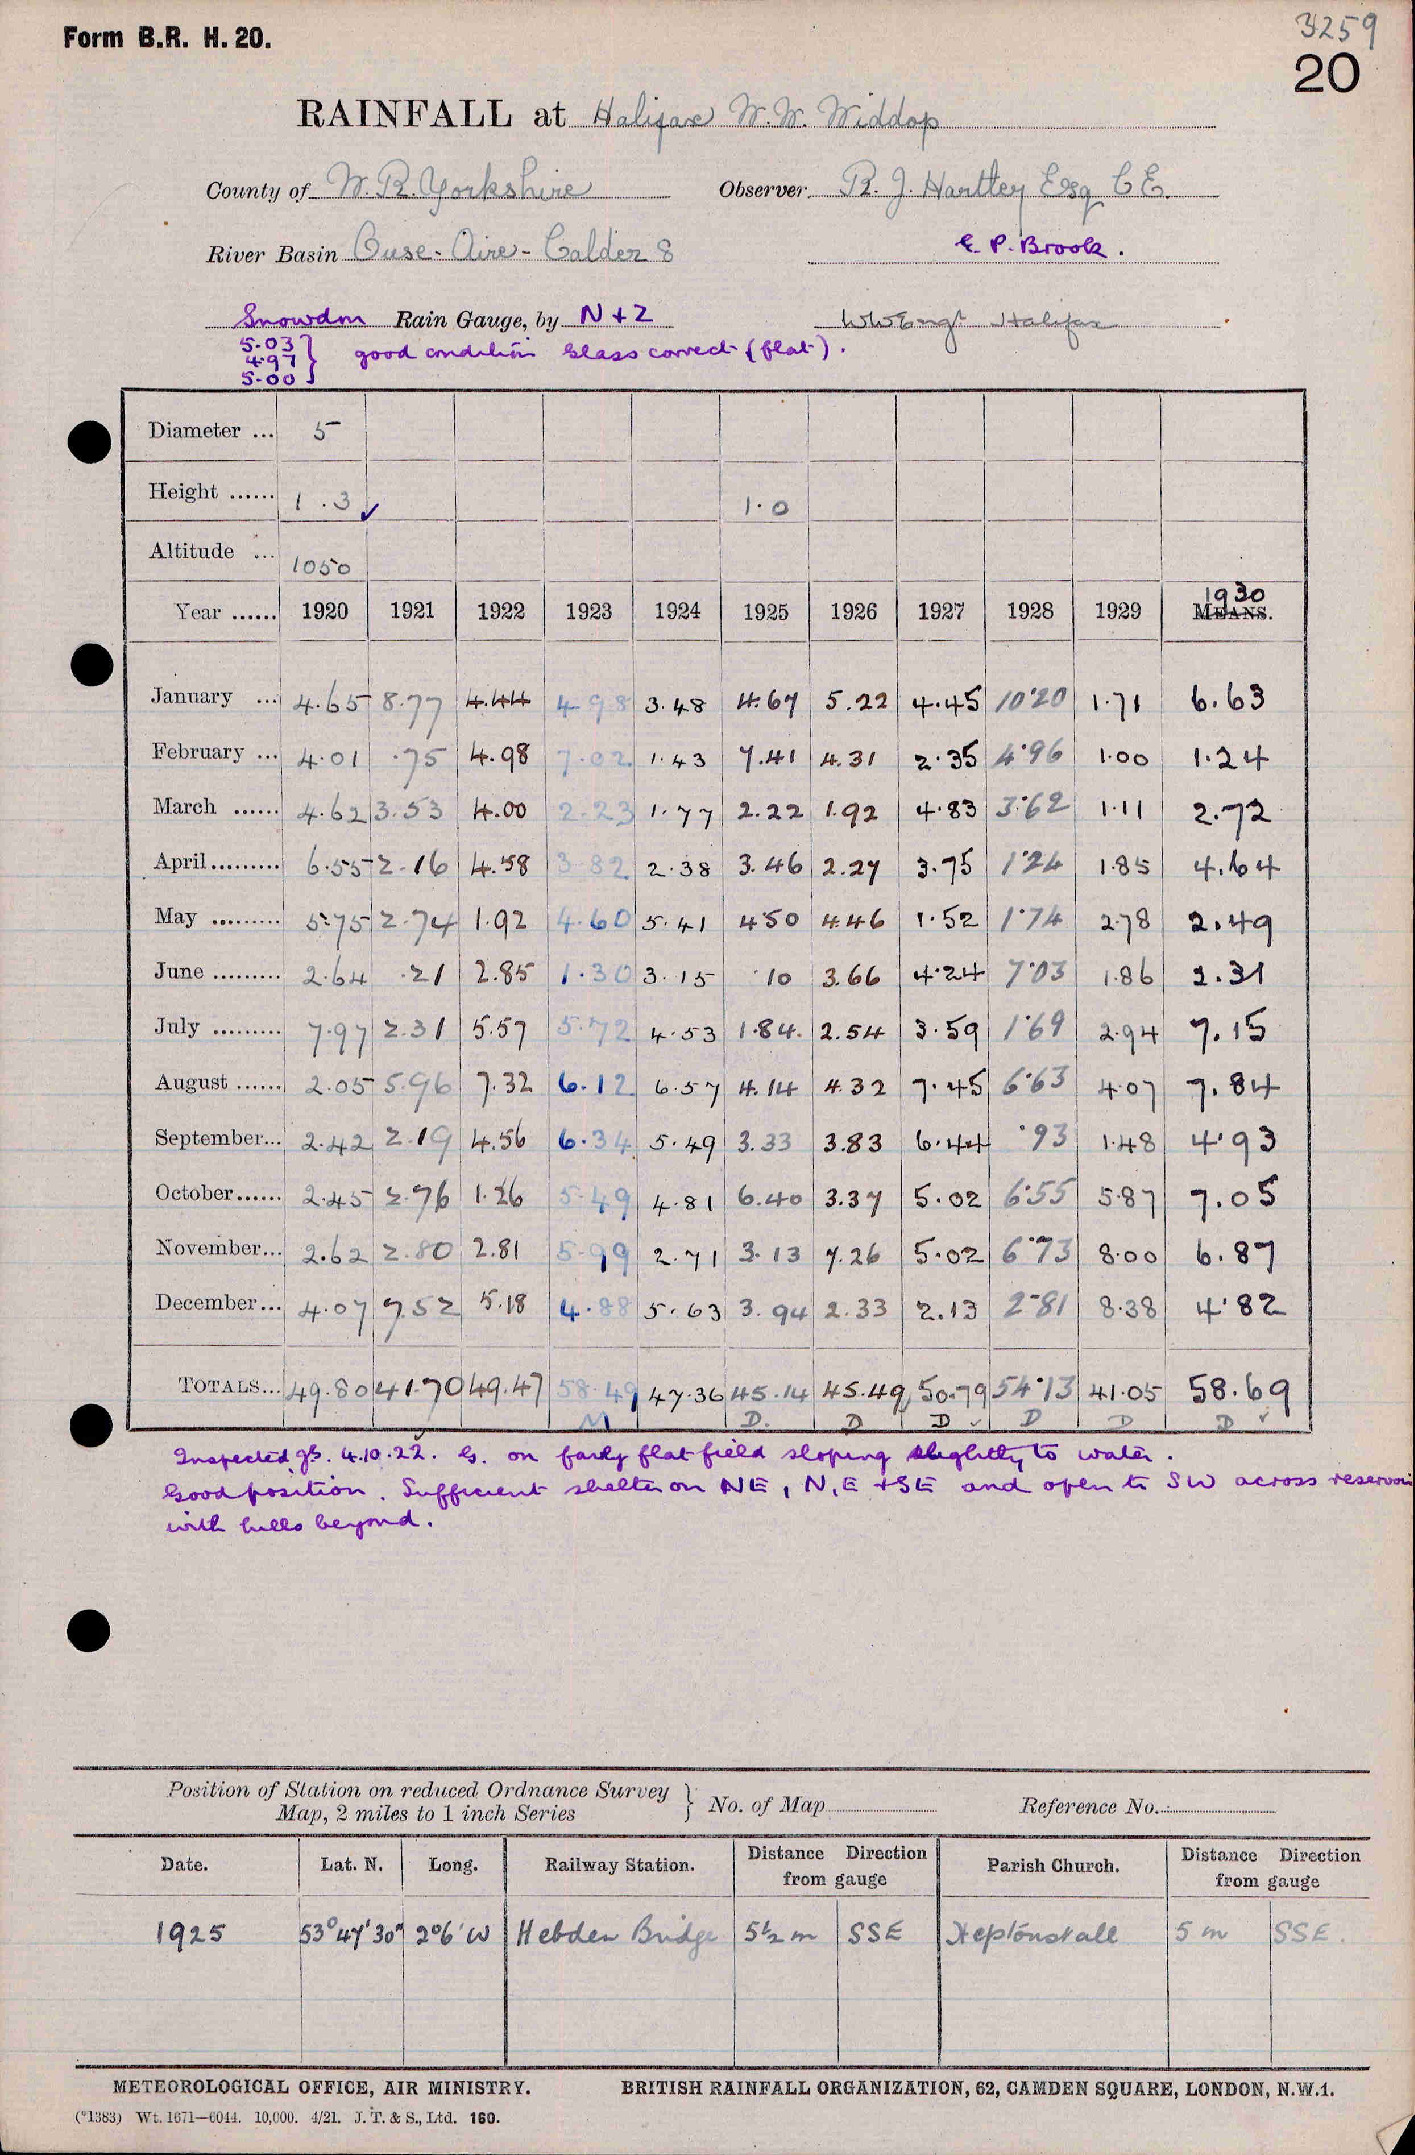 Form B.R. H. 20.
3259
20
RAINFALL at Halifax W.W. Widdop
County of W.R. Yorkshire Observer. R. J. Hartley Esq C.E.
River Basin Ouse - Aire - Calder 8 E. P. Brook.
Snowdon Rain Gauge, by N + Z WW Engr Halifax
5.03
4.97 } good condition Glass correct (flat).
5.00
Diameter ... 5
Height ...... 1.3 ✓ 1.0
Altitude ... 1050
Year ...... 1920 1921 1922 1923 1924 1925 1926 1927 1928 1929 1930 MEANS.
January ... 4.65 8.77 4.44 4.98 3.48 4.67 5.22 4.45 10.20 1.71 6.63
February ... 4.01 .75 4.98 7.02 1.43 7.41 4.31 2.35 4.96 1.00 1.24
March ...... 4.62 3.53 4.00 2.23 1.77 2.22 1.92 4.83 3.62 1.11 2.72
April......... 6.55 2.16 4.58 3.82 2.38 3.46 2.27 3.75 1.24 1.85 4.64
May ......... 5.75 2.74 1.92 4.60 5.41 4.50 4.46 1.52 1.74 2.78 2.49
June ......... 2.64 .21 2.85 1.30 3.15 .10 3.66 4.24 7.03 1.86 2.31
July ......... 7.97 2.31 5.57 5.72 4.53 1.84. 2.54 3.59 1.69 2.94 7.15
August ...... 2.05 5.96 7.32 6.12 6.57 4.14 4.32 7.45 6.63 4.07 7.84
September... 2.42 2.19 4.56 6.34 5.49 3.33 3.83 6.44 .93 1.48 4.93
October...... 2.45 2.76 1.26 5.49 4.81 6.40 3.37 5.02 6.55 5.87 7.05
November... 2.62 2.80 2.81 5.99 2.71 3.13 7.26 5.02 6.73 8.00 6.87
December... 4.07 7.52 5.18 4.88 5.63 3.94 2.33 2.13 2.81 8.38 4.82
TOTALS... 49.80 41.70 49.47 58.49 47.36 45.14 45.49 50.79 54.13 41.05 58.69
M D. D D ✓ D D D ✓
Inspected 4.10.22. G. on fairly flat field sloping slightly to water.
Good position. Sufficient shelter on NE, N, E + SE and open to SW across reservoir
with hills beyond.
Position of Station on reduced Ordnance Survey } No. of Map Reference No.
Map, 2 miles to 1 inch Series
Date. Lat. N. Long. Railway Station. Distance Direction from gauge Parish Church. Distance Direction from gauge
1925 53° 47' 30" 2° 6' W Hebden Bridge 5½ m SSE Heptonstall 5 m SSE.
METEOROLOGICAL OFFICE, AIR MINISTRY. BRITISH RAINFALL ORGANIZATION, 62, CAMDEN SQUARE, LONDON, N.W.1.
(*1383) Wt. 1671—6044. 10,000. 4/21. J. T. & S., Ltd. 160.